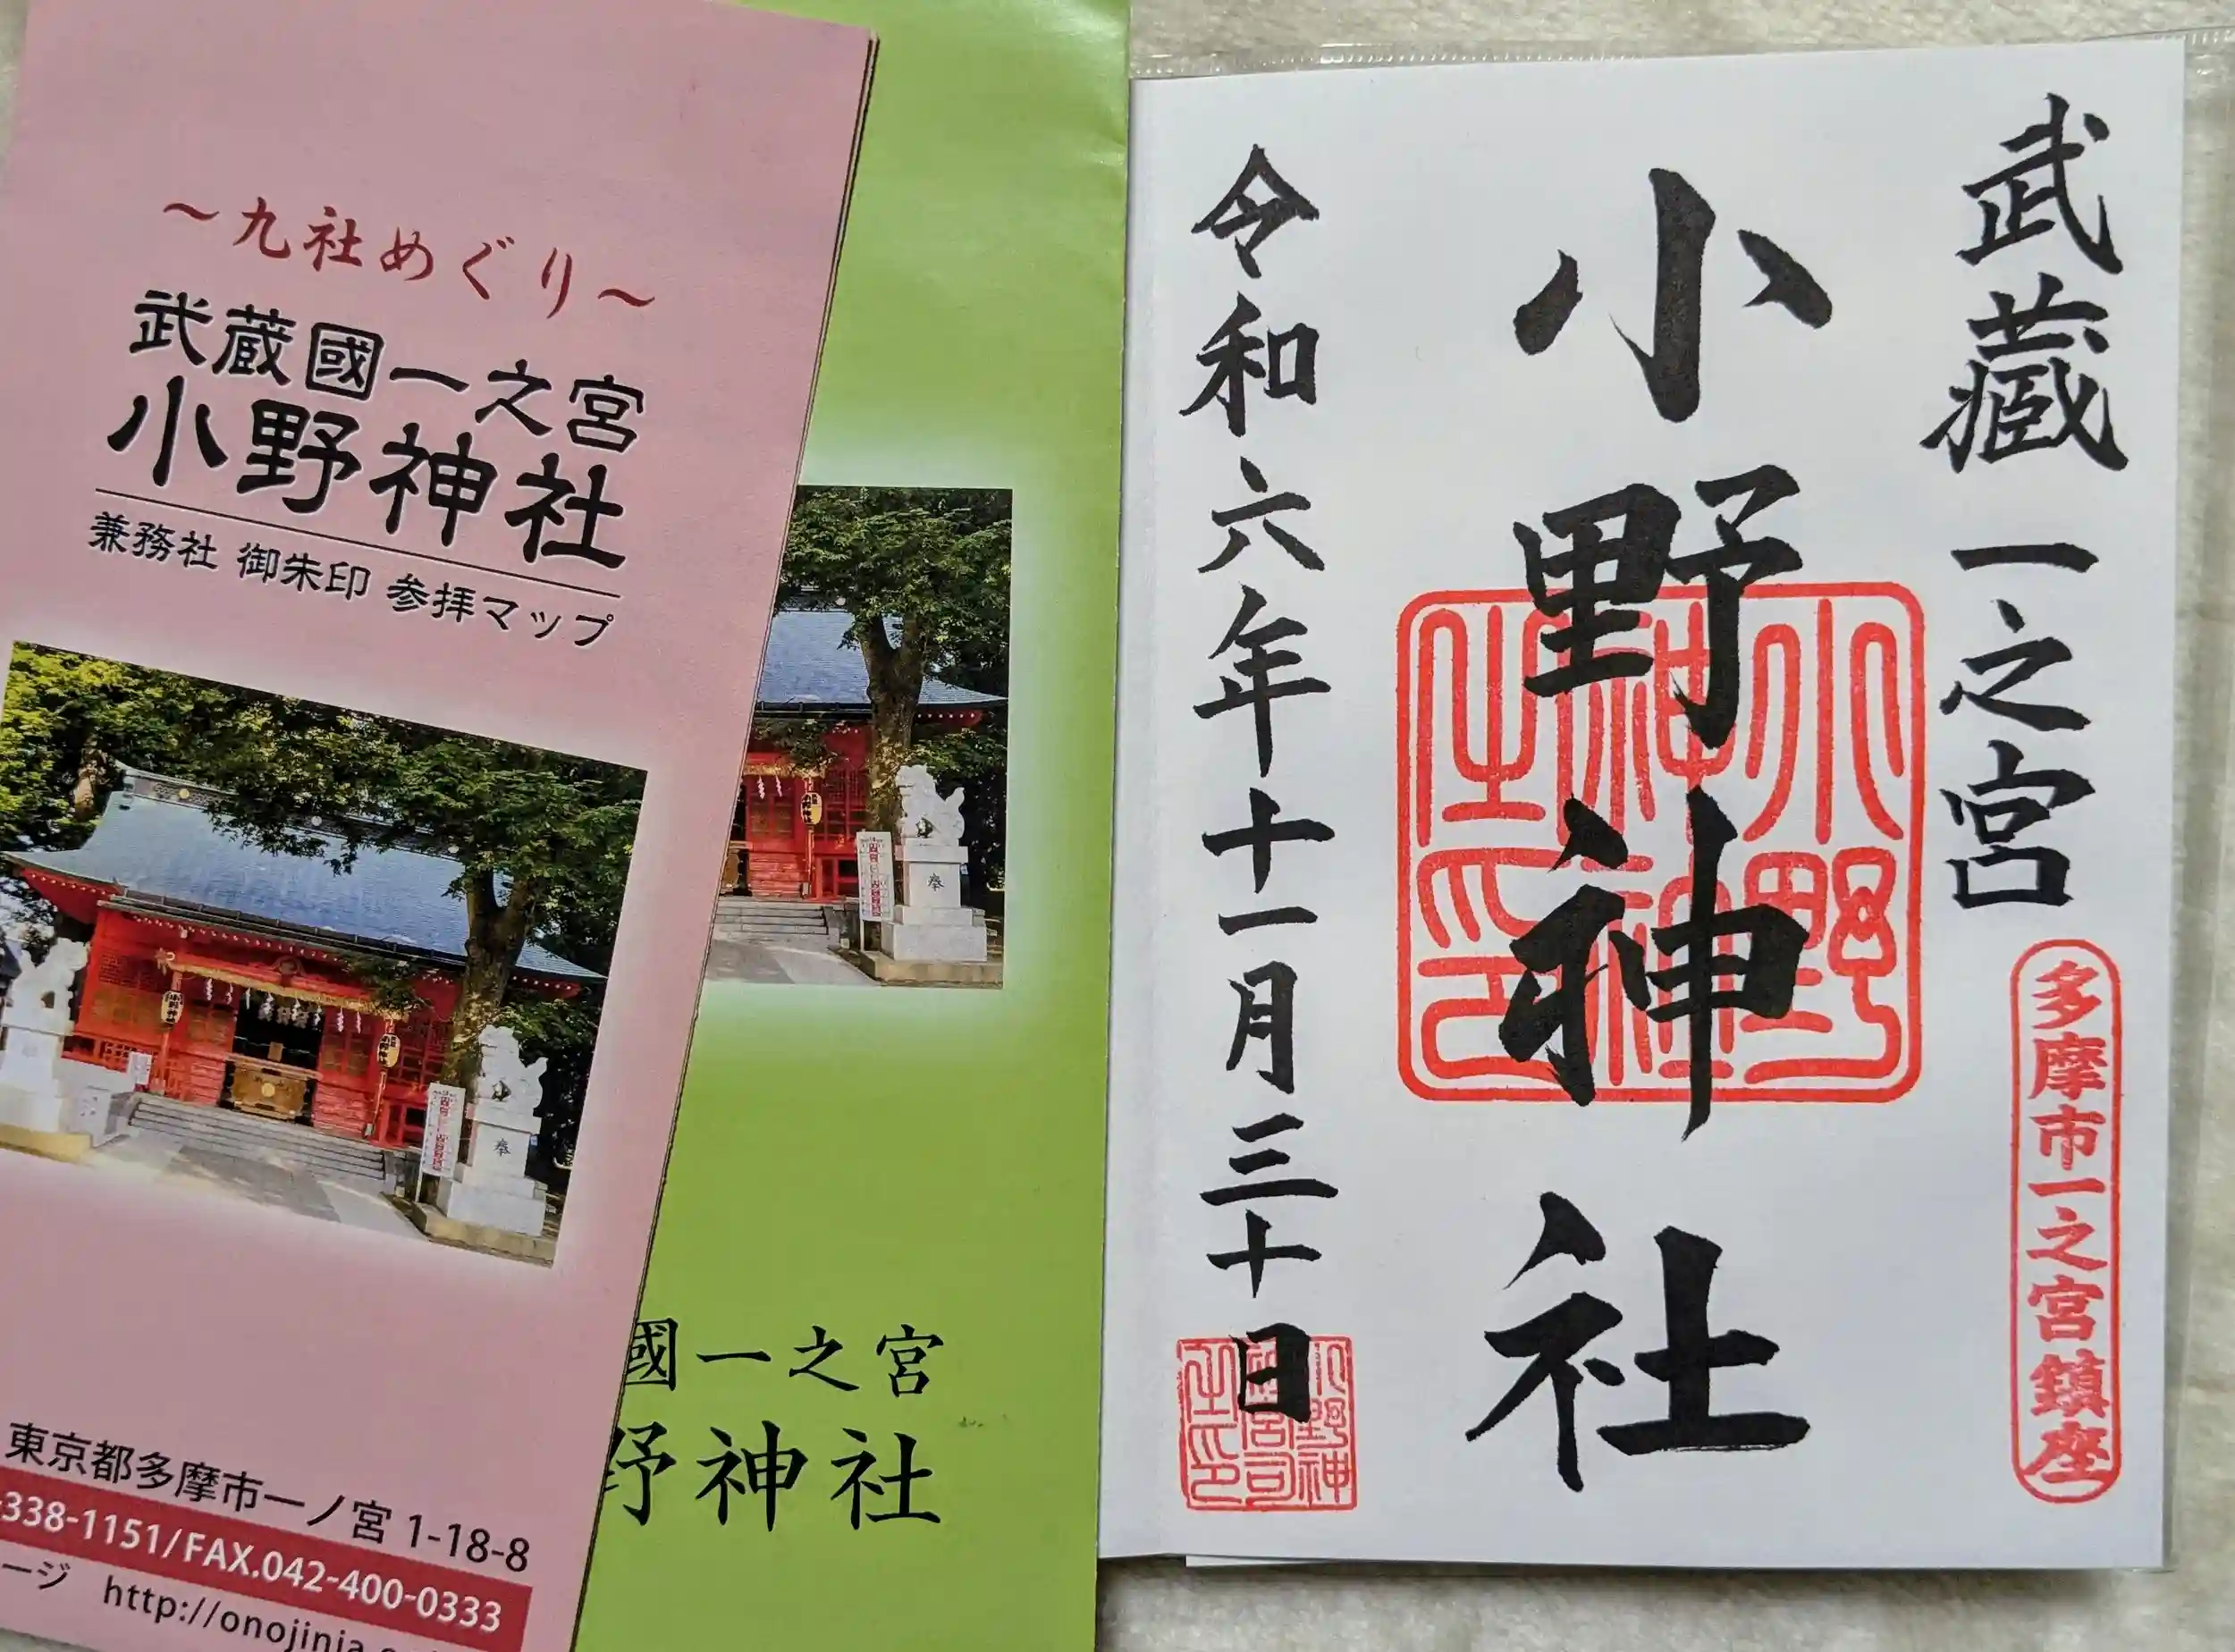 ～九社めぐり～
武蔵國一之宮
小野神社
兼務社 御朱印 参拝マップ
奉
東京都多摩市一ノ宮 1-18-8
338-1151/FAX.042-400-0333
ージ http://onojinja.
奉
國一之宮
野神社
武蔵一之宮
多摩市一之宮鎮座
小野神社
小野神社之印
令和六年十一月三十日
小野神社宮司之印